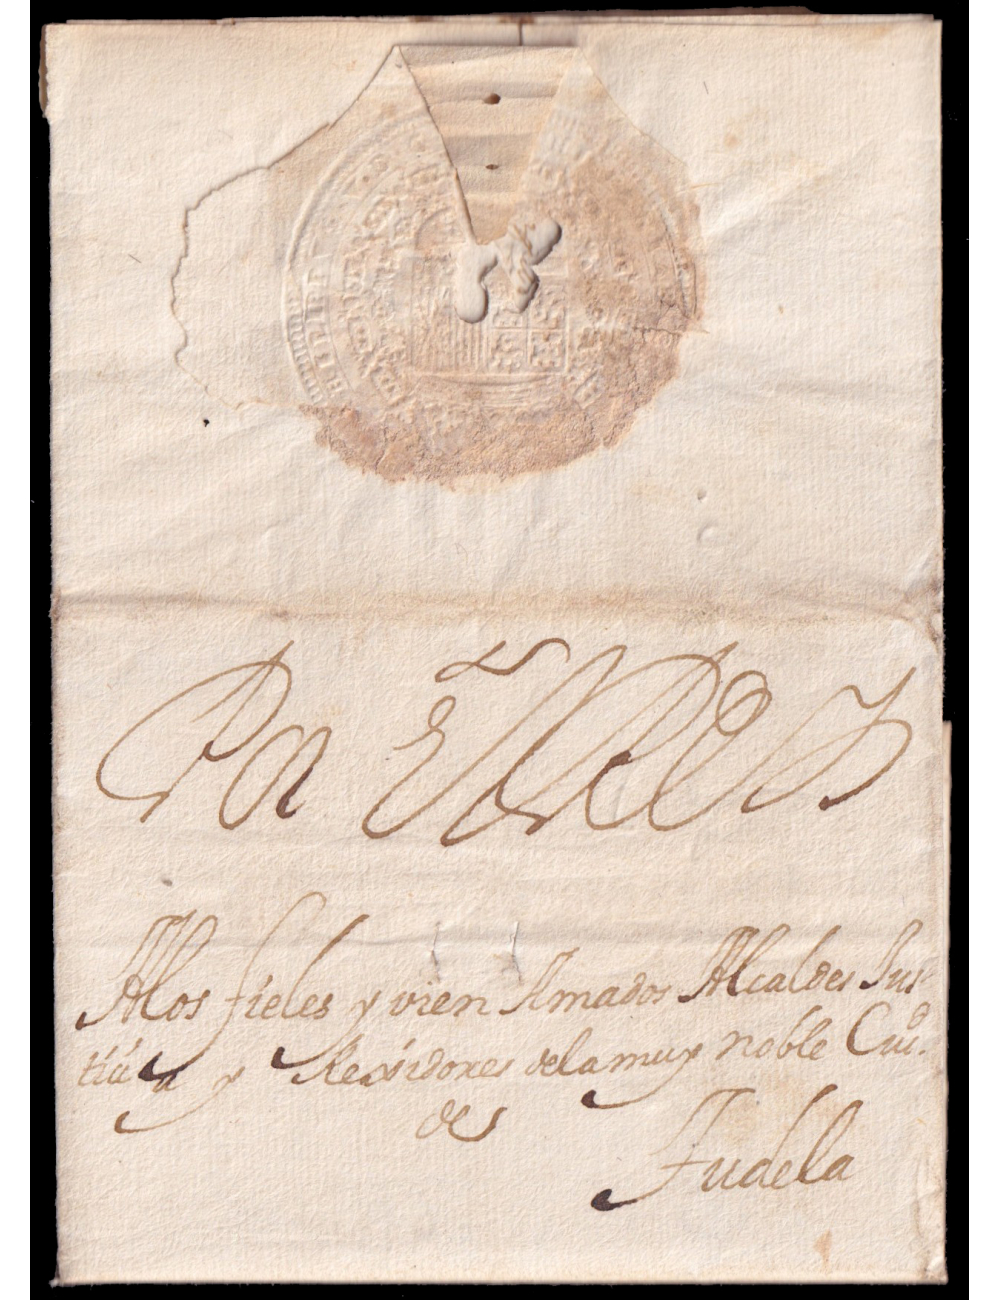 Por El Rey
A los fieles y vien Amados Alcaldes Jus-
tiçia y Rexidores de la muy noble Ciud.
de
Tudela